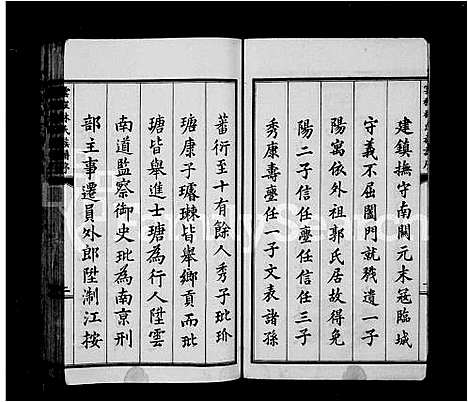 建鎮撫守南關元末寇臨城
守義不屈闔門就殘遺一子
陽寓依外祖郭氏居故得免
陽二子信任塵任信任三子
秀康壽塵任一子文表諸孫
蕃衍至十有餘人秀子玭玠
瑭康子璿㻋皆舉鄉貢而玭
瑭皆舉進士瑭為行人陞雲
南道監察御史玭為南京刑
部主事遷員外郎陞淛江按